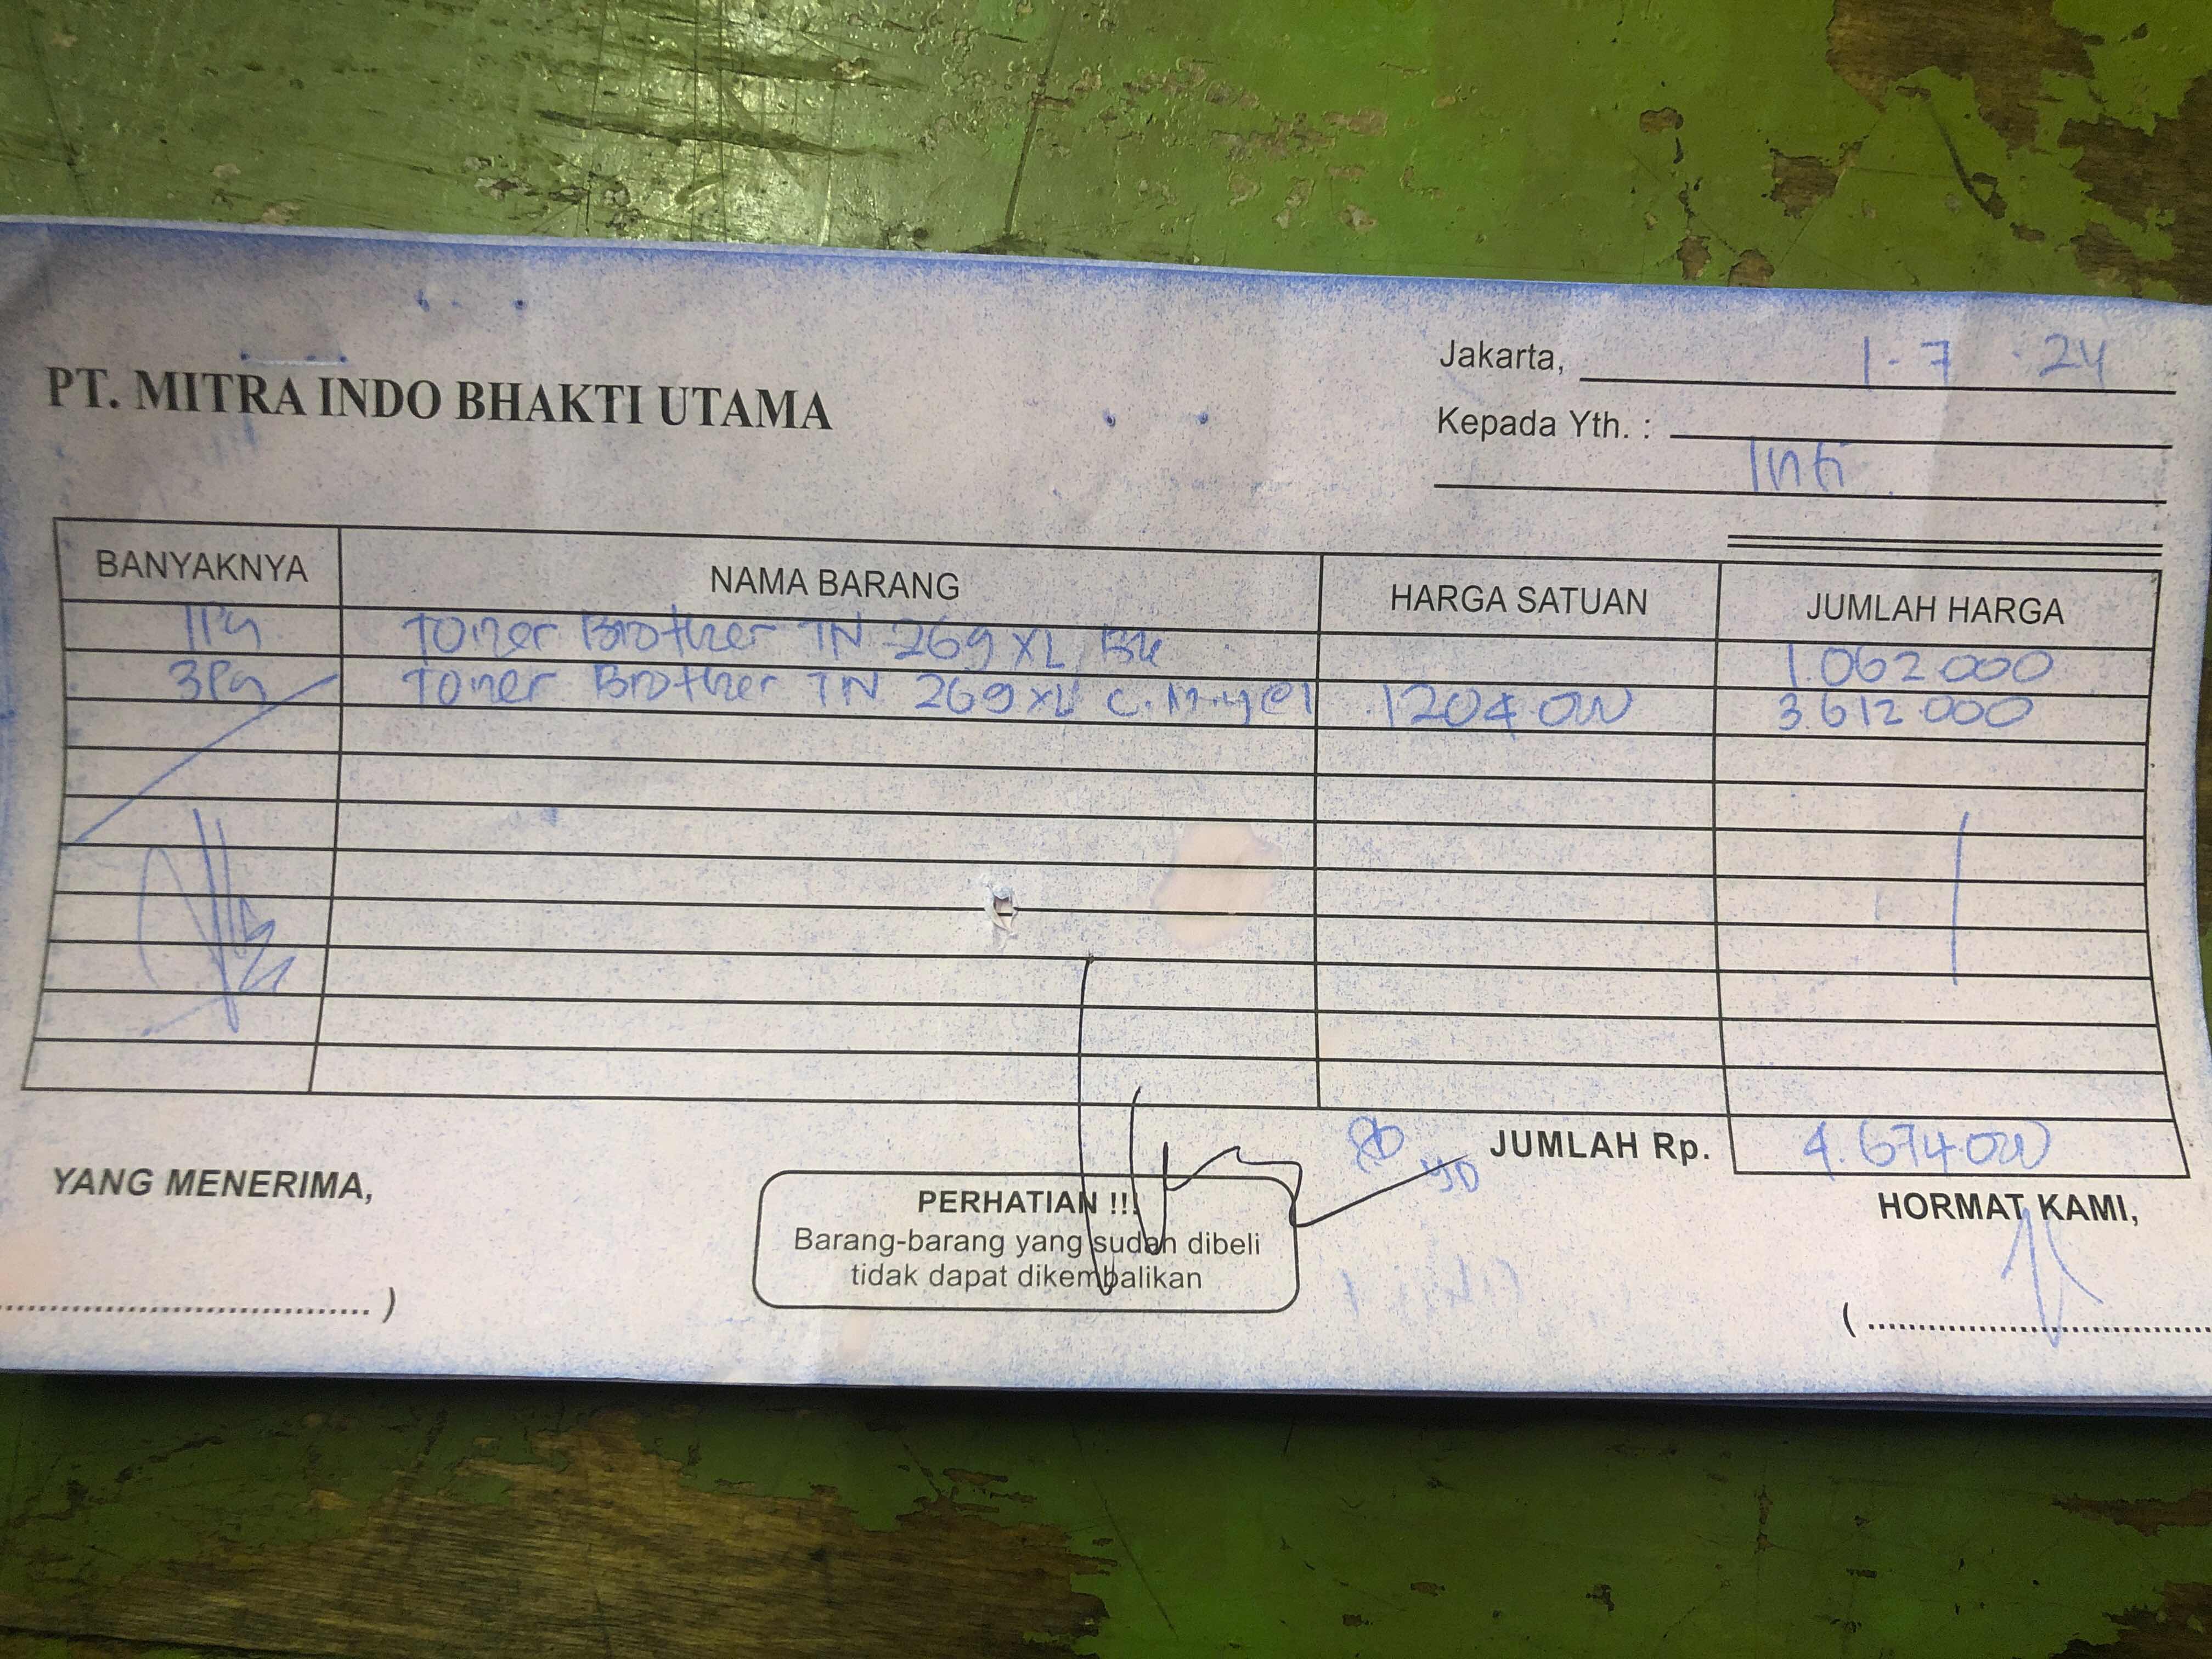 Jakarta, 1-7-24
PT. MITRA INDO BHAKTI UTAMA
Kepada Yth. :
Inti
BANYAKNYA NAMA BARANG HARGA SATUAN JUMLAH HARGA
1 Pcs Toner Brother TN 269 XL Bk 1.062.000
3 Pcs Toner Brother TN 269 XL C.M.yel 1204.000 3.612.000
JUMLAH Rp. 4.674.000
YANG MENERIMA,
PERHATIAN !!!
Barang-barang yang sudah dibeli
tidak dapat dikembalikan
HORMAT KAMI,